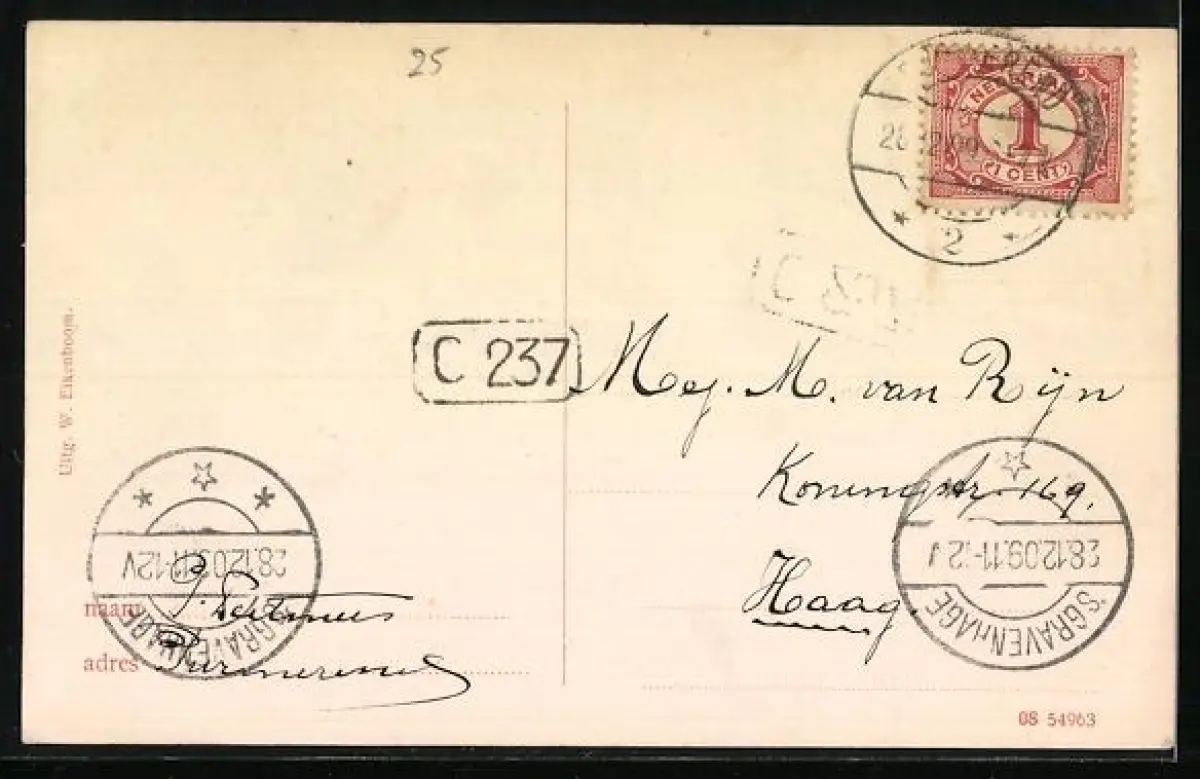 25
NEDERLAND
1
1 CENT
2
C 237
Mej. M. van Rijn
Koningstr. 169.
Haag.
Uitg. W. Eikenboom.
28.12.09.11-12V
'S GRAVENHAGE
28.12.09.11-12V
'S GRAVENHAGE
naam
adres
08 54963